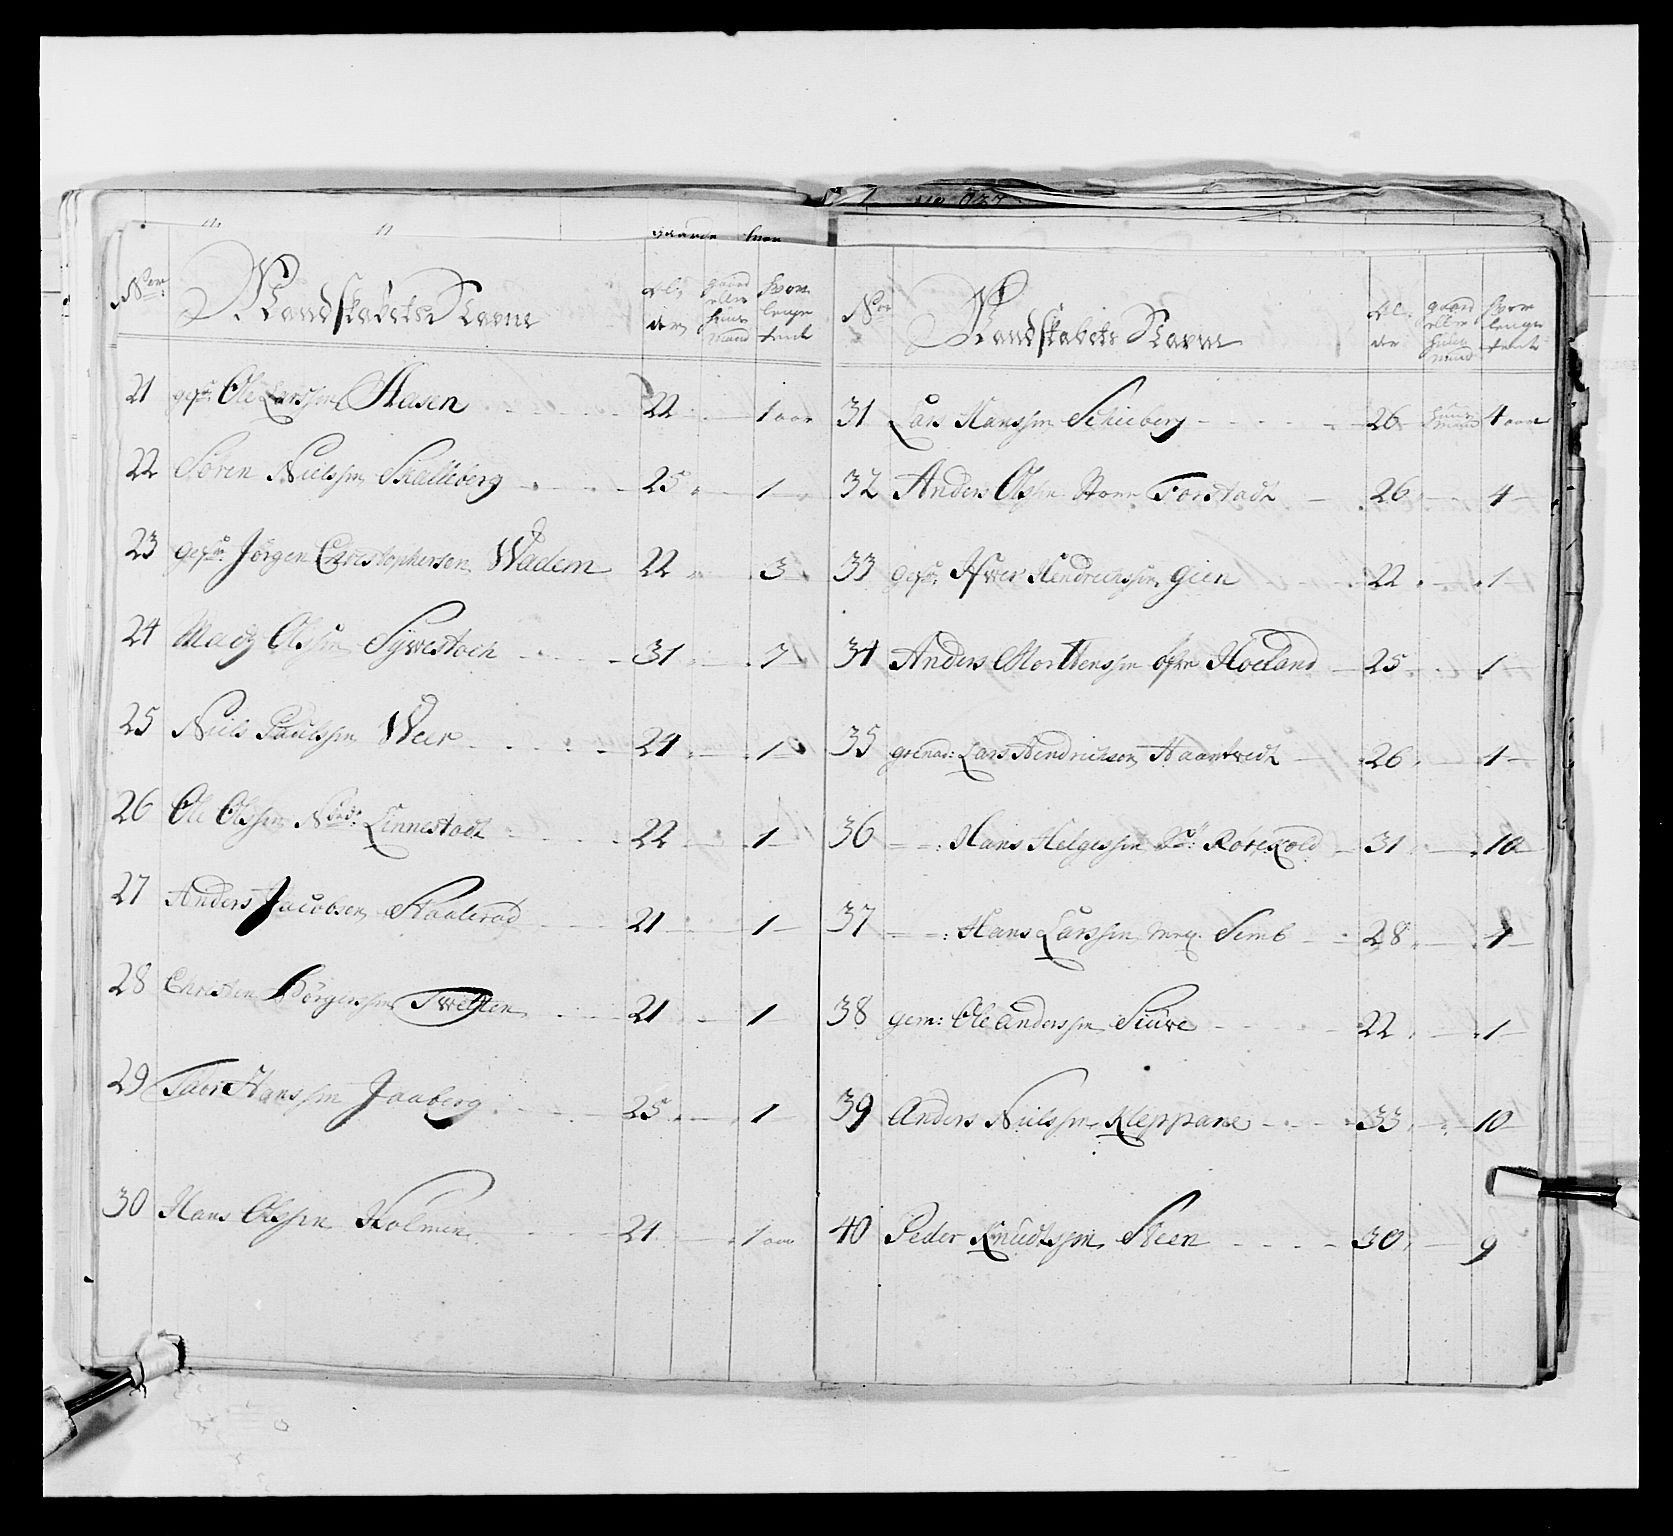 No: Mandskabets Navne Al: der gaard eller huus mand hvor lenge tient
21 gefr: Ole Larssøn Aasen 22 1 aar
22 Søren Nielssøn Skalleberg 25 1
23 gefr: Jørgen Christophersen Wadem 22 3
24 Madz Olssøn Sywestoch 31 7
25 Niels Paulssøn Weer 24 1
26 Ole Olssøn Nord: Linnestadt 22 1
27 Anders Jacobsen Skaalerød 21 1
28 Christen Børgerssøn Twetten 21 1
29 Taer Hanssøn Jaaberg 25 1
30 Hans Olssøn Holmen 21 1 aar
No: Mandskabets Navne Al: der gaard eller huus mand hvor lenge tient
31 Lars Hanssøn Schieberg 26 huus mand 4 aar
32 Anders Olssøn Store Forstadt 26 4
33 gefr: Hendrichssøn gien 22 1
34 Anders Morttenssøn Hoeland 25 1
35 grenad: Lars Hendrichson Haantvedt 26 1
36 Hans Helgessøn Rotskold 31 10
37 Hans Larssøn Semb 28
38 gem: Ole Anderssøn Siuve 22 1
39 Anders Nielssøn Kleppane 33 10
40 Peder Knudtssøn Steen 30 9